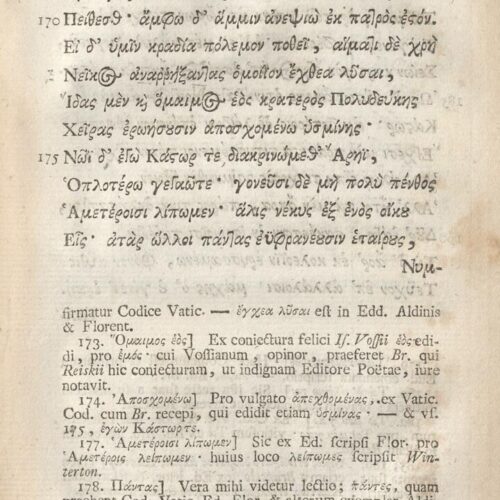 170 Πείθεσθ᾽ ἄμφω δ᾽ ἄμμιν ἀνεψιὼ ἐκ παῖρὸς ἐςόν.
Εἰ δ᾽ ὑμῖν κραδία πόλεμον ποθεῖ, αἵμαῖι δὲ χρὴ
Νεῖκος ἀναῤῥήξανῖας ὁμοίϊον ἔχθεα λῦσαι,
Ἴδας μὲν κ̀ ὅμαιμος ἑὸς κρατερὸς Πολυδεύκης
Χεῖρας ἐρωήσουσιν ἀποσχομένω ὑσμίνης·
175 Νῶϊ δ᾽ ἐγὼ Κάςωρ τε διακρινώμεθ᾽ Ἄρηϊ,
Ὁπλοτέρω γεγαῶτε· γονεῦσι δὲ μὴ πολὺ πένθος
Ἁμετέροισι λίπωμεν· ἅλις νέκυς ἐξ ἑνὸς οἴκου
Εἷς· ἀτὰρ ὧλλοι πάνῖας ἐϋφρανέουσιν ἑταίρους,
Νυμ-
firmatur Codice Vatic. — ἔγχεα λῦσαι est in Edd. Aldinis
& Florent.
173. Ὅμαιμος ἑὸς] Ex coniectura felici Is. Vossii ἑὸς edi-
di, pro ἐμός· cui Vossianum, opinor, praeferet Br. qui
Reiskii hic coniecturam, ut indignam Editore Poëtae, iure
notavit.
174. Ἀποσχομένω] Pro vulgato ἀπεχθομένας, ex Vatic.
Cod. cum Br. recepi, qui edidit etiam ὑσμίνας· — & vs.
175, ἐγὼν Κάστωρτε.
177. Ἁμετέροισι λίπωμεν] Sic ex Ed. scripsi Flor. pro
Ἁμετέροις λείπωμεν· huius loco λείπωμες scripsit Win-
terton.
178. Πάντας] Vera mihi videtur lectio; πάντες, quam